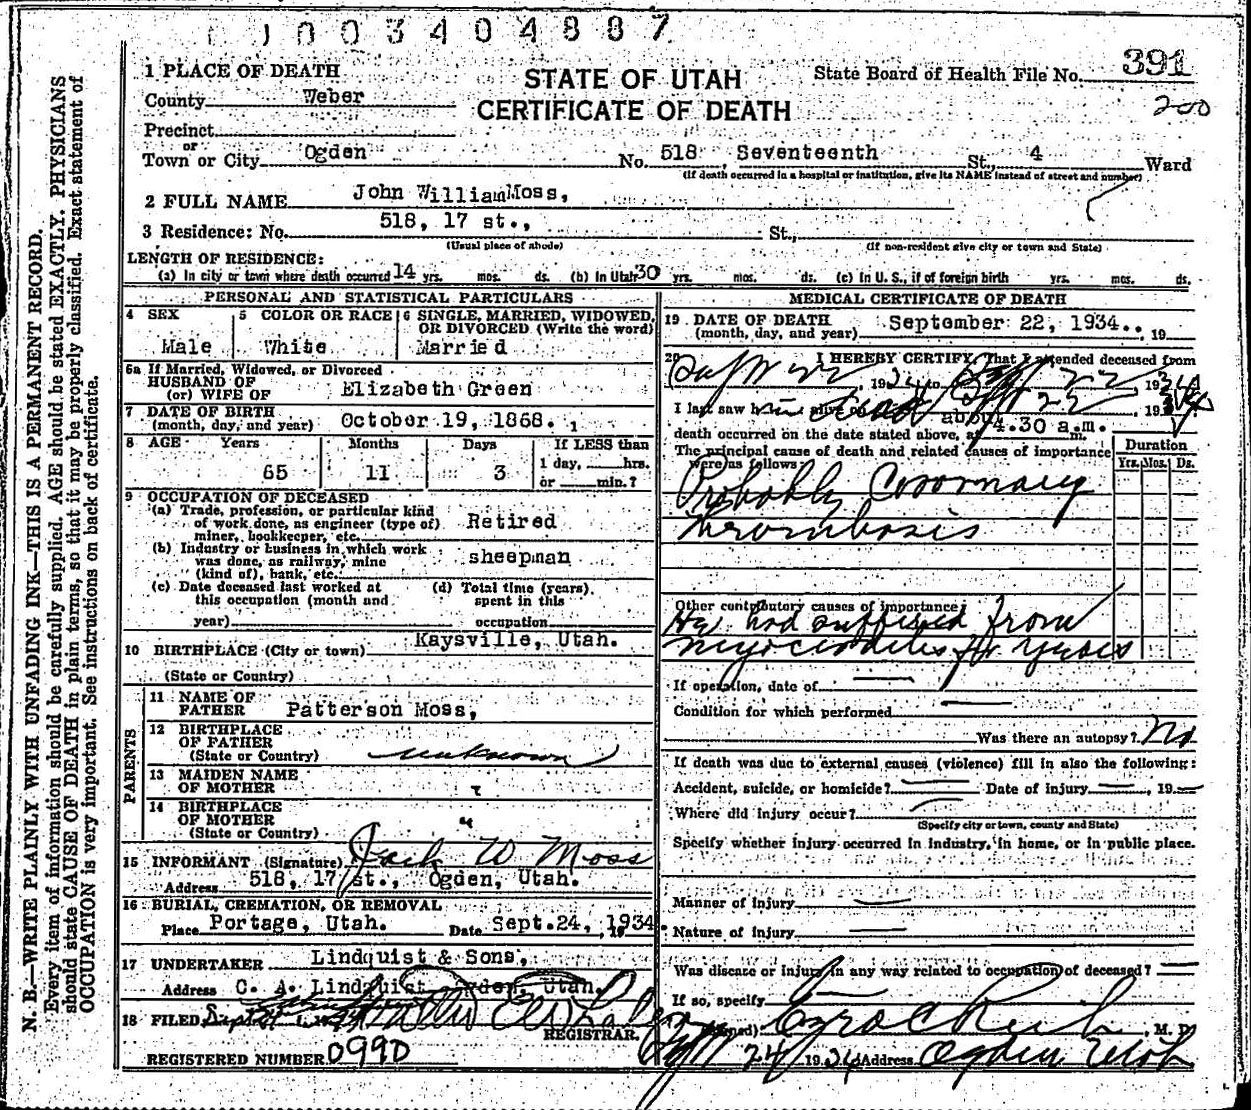 003404887
1 PLACE OF DEATH
STATE OF UTAH
State Board of Health File No. 391
County Weber
CERTIFICATE OF DEATH
200
Precinct
or
Town or City Ogden No. 518 Seventeenth St., 4 Ward
(If death occurred in a hospital or institution, give its NAME instead of street and number)
2 FULL NAME John William Moss,
3 Residence: No. 518, 17 st., St.,
(Usual place of abode) (If non-resident give city or town and State)
LENGTH OF RESIDENCE:
(a) In city or town where death occurred 14 yrs. mos. ds. (b) In Utah 30 yrs. mos. ds. (c) In U. S., if of foreign birth yrs. mos. ds.
PERSONAL AND STATISTICAL PARTICULARS
4 SEX Male
5 COLOR OR RACE White
6 SINGLE, MARRIED, WIDOWED, OR DIVORCED (Write the word) Married
6a If Married, Widowed, or Divorced
HUSBAND OF
(or) WIFE OF Elizabeth Green
7 DATE OF BIRTH
(month, day, and year) October 19, 1868.
8 AGE Years Months Days If LESS than
65 11 3 1 day, hrs.
or min.?
9 OCCUPATION OF DECEASED
(a) Trade, profession, or particular kind
of work done, as engineer (type of) Retired
miner, bookkeeper, etc.
(b) Industry or business in which work
was done, as railway, mine sheepman
(kind of), bank, etc.
(c) Date deceased last worked at
this occupation (month and
year)
(d) Total time (years)
spent in this
occupation
10 BIRTHPLACE (City or town) Kaysville, Utah.
(State or Country)
PARENTS
11 NAME OF
FATHER Patterson Moss,
12 BIRTHPLACE
OF FATHER
(State or Country) unknown
13 MAIDEN NAME
OF MOTHER "
14 BIRTHPLACE
OF MOTHER "
(State or Country)
15 INFORMANT (Signature) Jack W Moss
Address 518, 17 st., Ogden, Utah.
16 BURIAL, CREMATION, OR REMOVAL
Place Portage, Utah. Date Sept. 24, 1934
17 UNDERTAKER Lindquist & Sons,
Address C. A. Lindquist Ogden, Utah.
18 FILED
REGISTRAR.
REGISTERED NUMBER 0990
MEDICAL CERTIFICATE OF DEATH
19 DATE OF DEATH
(month, day, and year) September 22, 1934.., 19
20 I HEREBY CERTIFY, That I attended deceased from
Sept 22, 1934 to Sept 22, 1934
I last saw him alive on dead Sept 22, 1934
death occurred on the date stated above, at about 4.30 a.m. m.
The principal cause of death and related causes of importance
were as follows:
Duration
Yrs. Mos. Ds.
Probably Coronary
thrombosis
Other contributory causes of importance:
He had suffered from
myocarditis for years
If operation, date of
Condition for which performed
Was there an autopsy? No
If death was due to external causes (violence) fill in also the following:
Accident, suicide, or homicide? Date of injury , 19
Where did injury occur?
(Specify city or town, county and State)
Specify whether injury occurred in industry, in home, or in public place.
Manner of Injury
Nature of Injury
Was disease or injury in any way related to occupation of deceased?
If so, specify
(Signed) , M. D.
Sept 24 1934 Address Ogden Utah
N. B.—WRITE PLAINLY WITH UNFADING INK—THIS IS A PERMANENT RECORD.
Every item of information should be carefully supplied. AGE should be stated EXACTLY. PHYSICIANS
should state CAUSE OF DEATH in plain terms, so that it may be properly classified. Exact statement of
OCCUPATION is very important. See instructions on back of certificate.